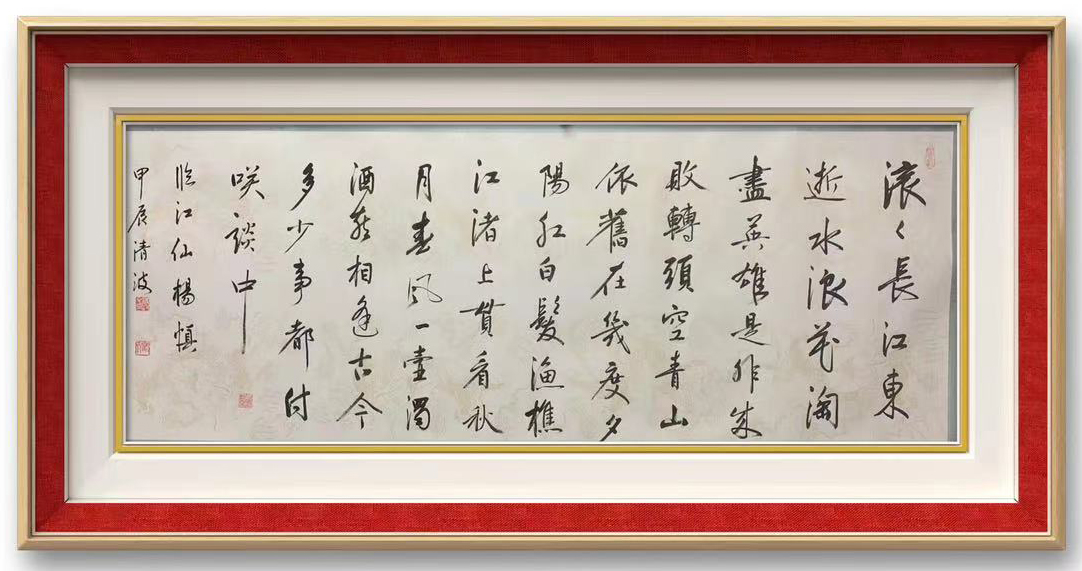 滚々長江東
逝水浪花淘
盡英雄是非成
敗轉頭空青山
依舊在幾度夕
陽紅白髮漁樵
江渚上貫看秋
月春風一壺濁
酒喜相逢古今
多少事都付
咲談中
臨江仙楊慎
甲辰清波